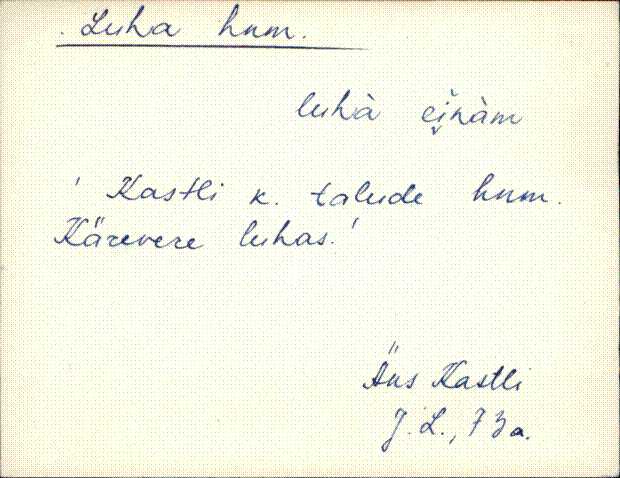 Luha hnm.
luhà ei̯nàm
' Kastli k. talude hnm.
Kärevere luhas.'
Äks Kastli
J. L., 73 a.